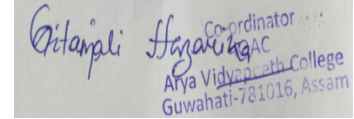 Gitanjali Hazarika
Co-ordinator
IQAC
Arya Vidyapeeth College
Guwahati-781016, Assam